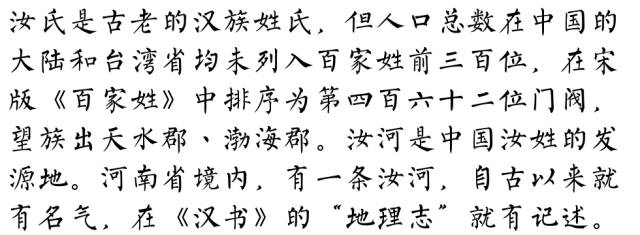 汝氏是古老的汉族姓氏，但人口总数在中国的
大陆和台湾省均未列入百家姓前三百位，在宋
版《百家姓》中排序为第四百六十二位门阀，
望族出天水郡、渤海郡。汝河是中国汝姓的发
源地。河南省境内，有一条汝河，自古以来就
有名气，在《汉书》的“地理志”就有记述。